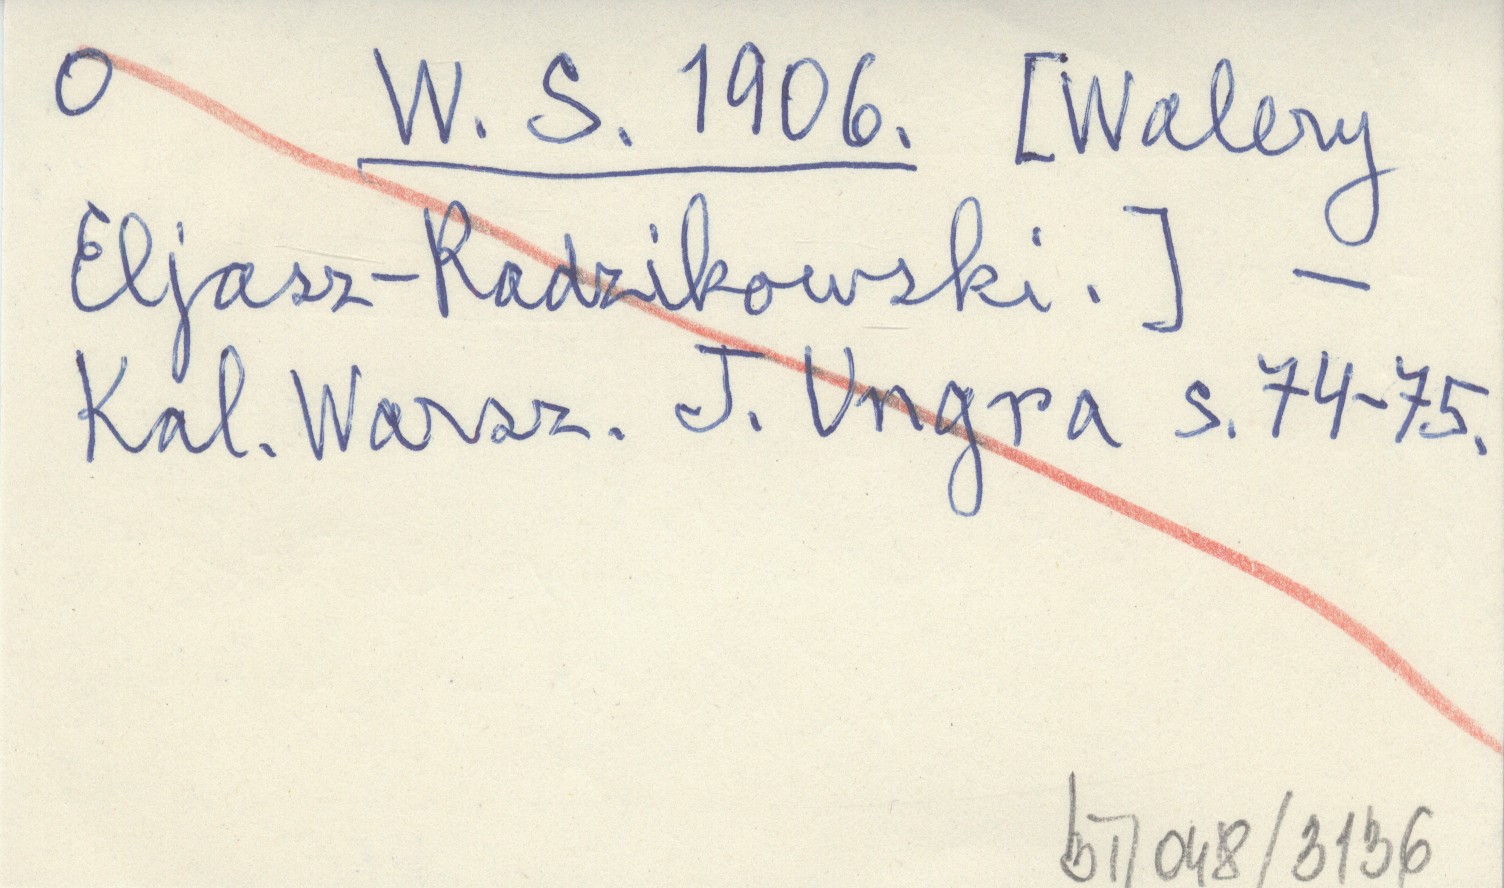 O W. S. 1906. [Walery
Eljasz-Radzikowski.] —
Kal. Warsz. J. Ungra s. 74-75.
048/3136